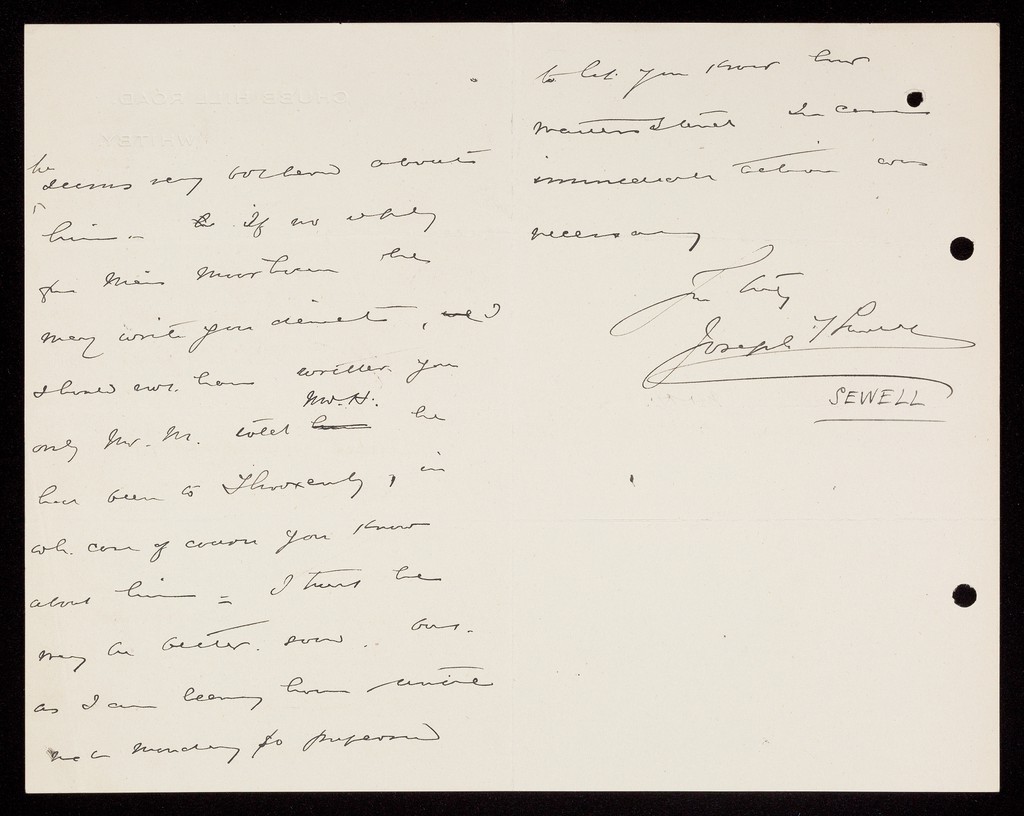 he
seems very bothered about
him - If no reply
from Miss Moorhouse he
may write you direct, I
should not have written you
Mr. H.
only Mr. M. told he
had been to , in
wh. case of course you know
about him = I trust he
may be better soon. but.
as I am leaving home until
next Monday so preferred
to let you know how
matters stand In case
immediate action was
necessary
Yrs truly
Joseph Sewell
SEWELL
CHUBB HILL ROAD
WHITBY